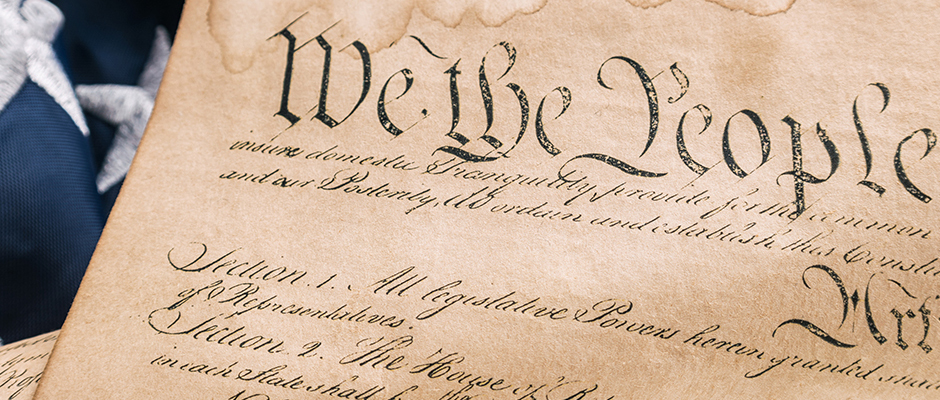 We the People
insure domestic Tranquility, provide for the common
and our Posterity, do ordain and establish this
Section. 1. All legislative Powers herein granted
of Representatives.
Section. 2. The House of
in each State shall